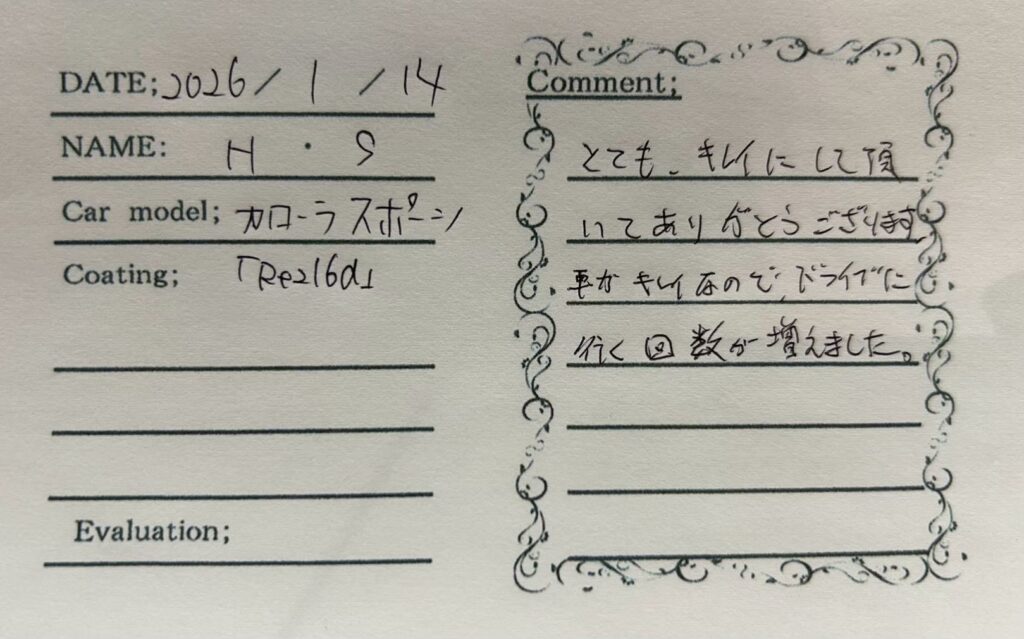 DATE; 2026 / 1 / 14
NAME: H・S
Car model; カローラスポーツ
Coating; 「Rez16d」
Evaluation;
Comment;
とても、キレイにして頂
いてありがとうございます。
車がキレイなので、ドライブに
行く回数が増えました。